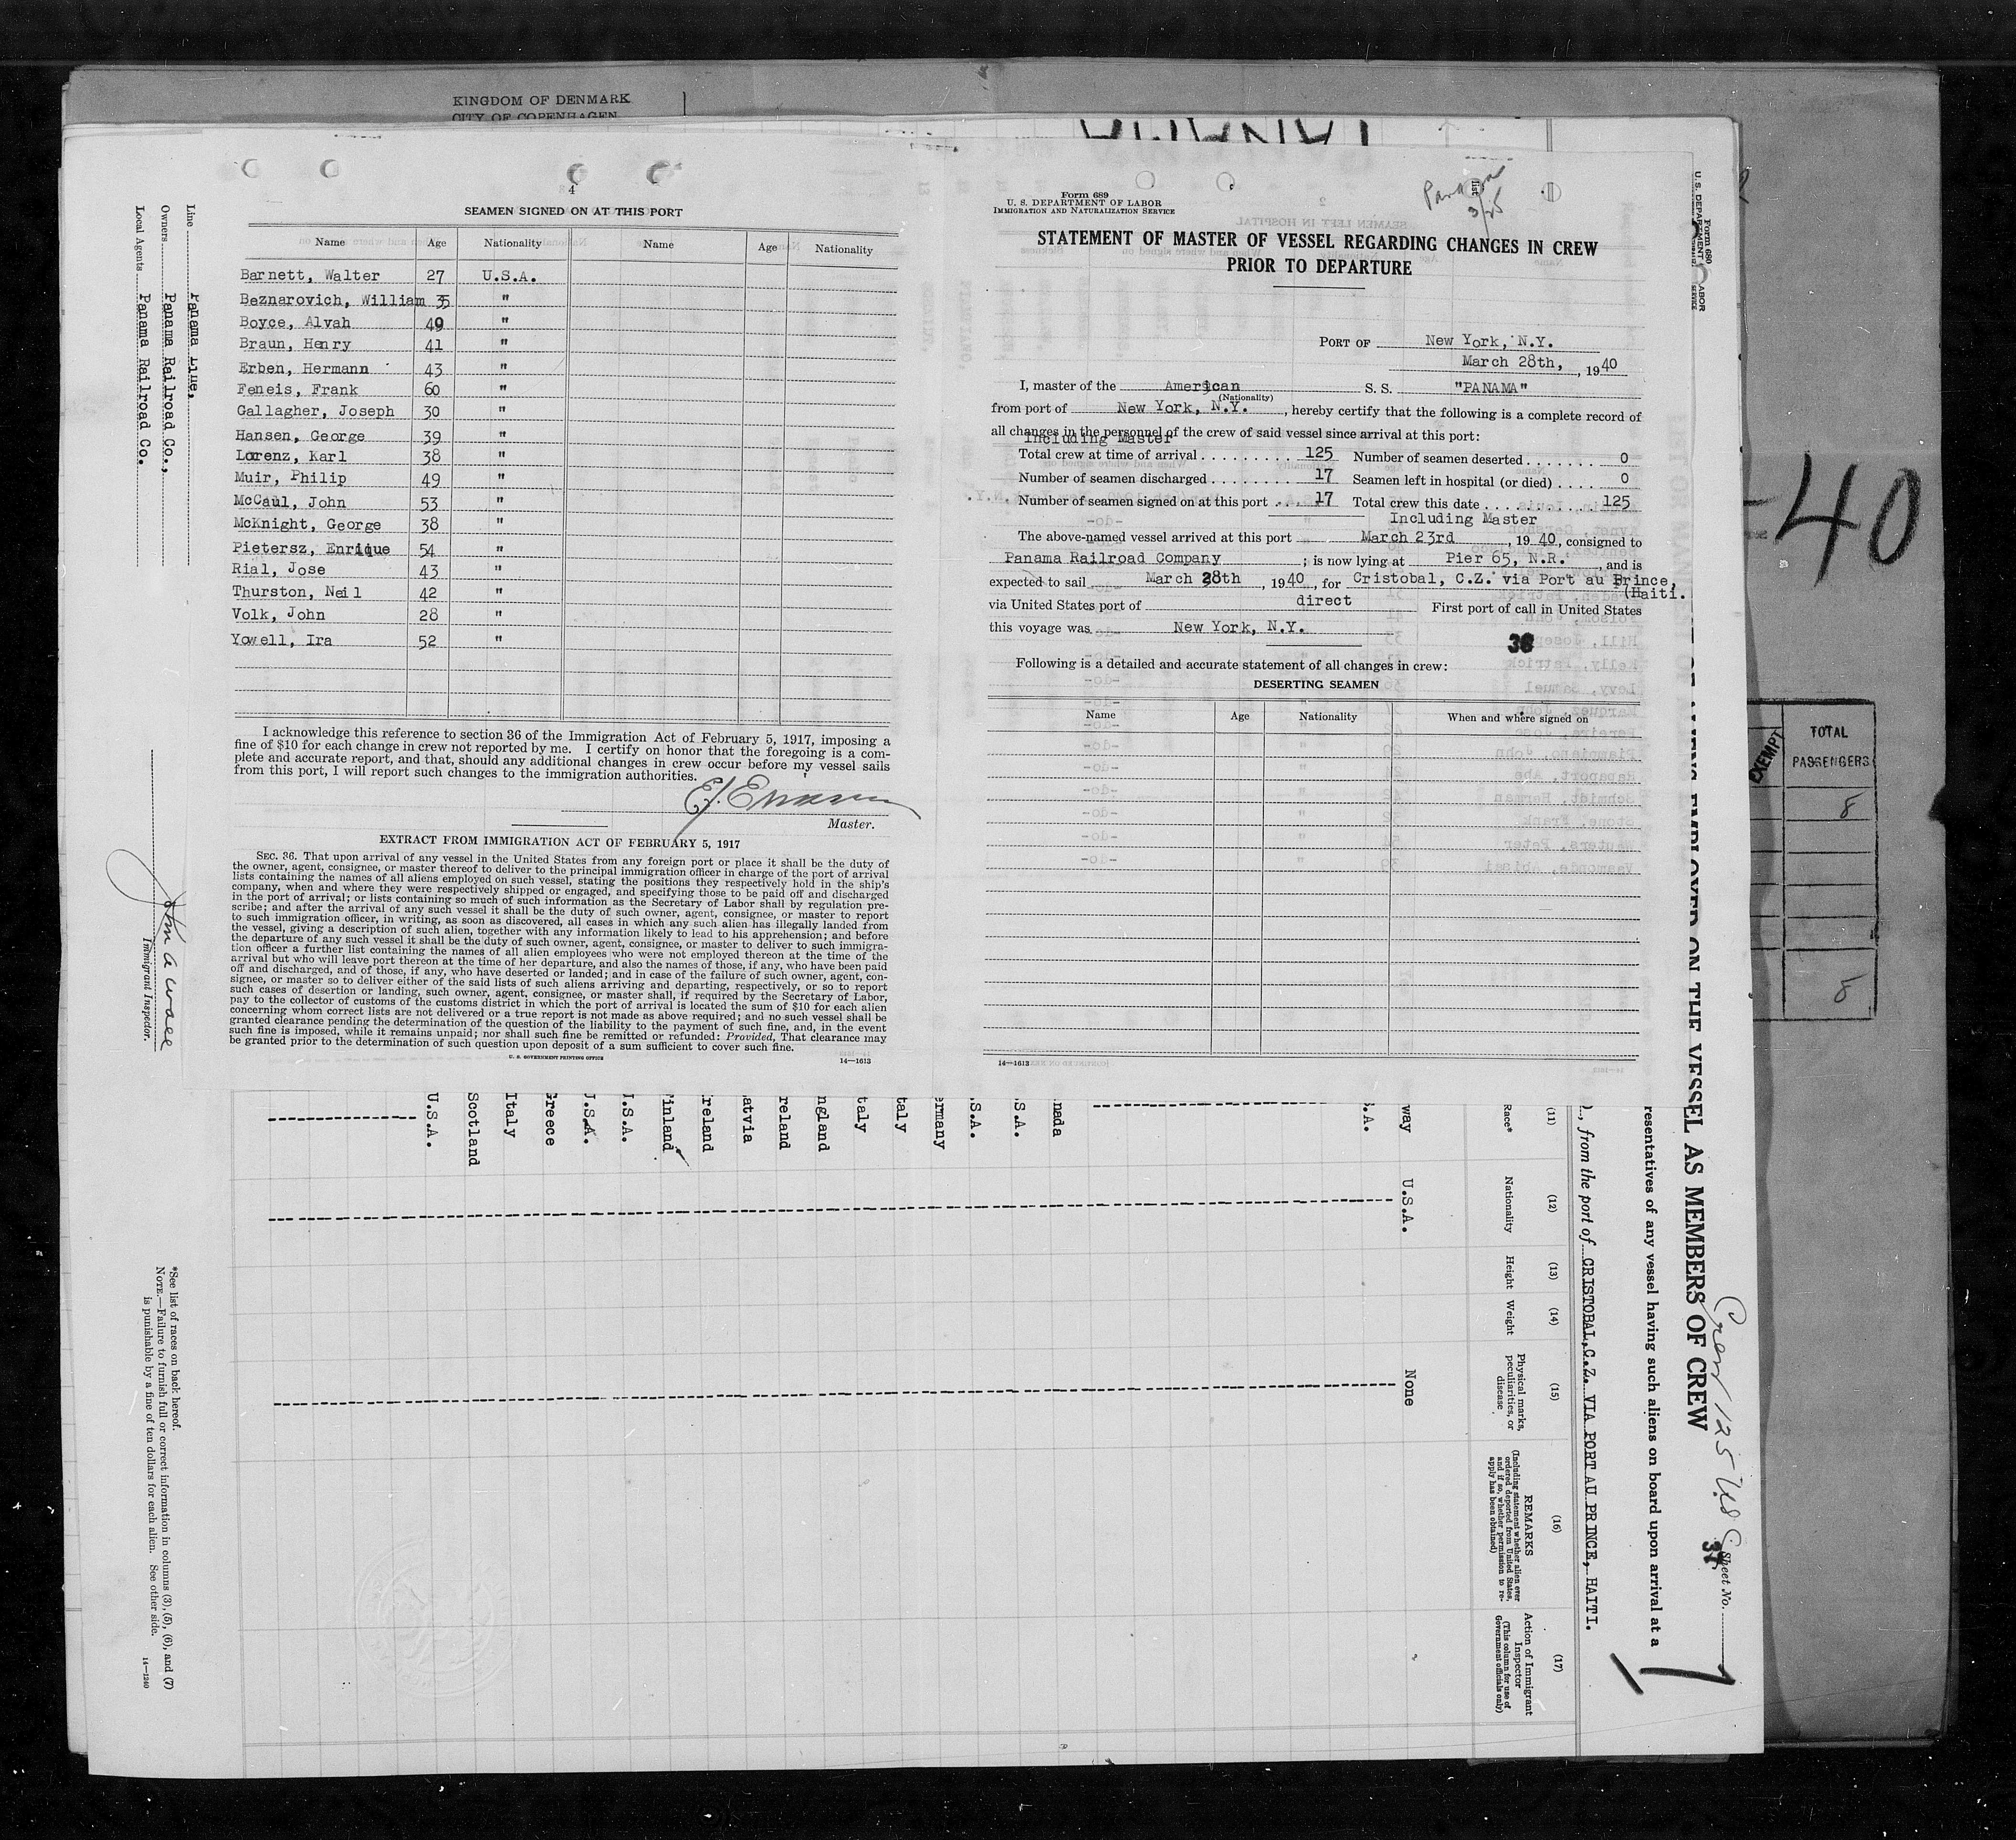 KINGDOM OF DENMARK
CITY OF COPENHAGEN
4
SEAMEN SIGNED ON AT THIS PORT
Name Age Nationality Name Age Nationality
Barnett, Walter 27 U.S.A.
Beznarovich, William 35 "
Boyce, Alvah 49 "
Braun, Henry 41 "
Erben, Hermann 43 "
Feneis, Frank 60 "
Gallagher, Joseph 30 "
Hansen, George 39 "
Lorenz, Karl 38 "
Muir, Philip 49 "
McCaul, John 53 "
McKnight, George 38 "
Pietersz, Enrique 54 "
Rial, Jose 43 "
Thurston, Neil 42 "
Volk, John 28 "
Yowell, Ira 52 "
I acknowledge this reference to section 36 of the Immigration Act of February 5, 1917, imposing a
fine of $10 for each change in crew not reported by me. I certify on honor that the foregoing is a com-
plete and accurate report, and that, should any additional changes in crew occur before my vessel sails
from this port, I will report such changes to the immigration authorities.
Master.
EXTRACT FROM IMMIGRATION ACT OF FEBRUARY 5, 1917
SEC. 36. That upon arrival of any vessel in the United States from any foreign port or place it shall be the duty of
the owner, agent, consignee, or master thereof to deliver to the principal immigration officer in charge of the port of arrival
lists containing the names of all aliens employed on such vessel, stating the positions they respectively hold in the ship's
company, when and where they were respectively shipped or engaged, and specifying those to be paid off and discharged
in the port of arrival; or lists containing so much of such information as the Secretary of Labor shall by regulation pre-
scribe; and after the arrival of any such vessel it shall be the duty of such owner, agent, consignee, or master to report
to such immigration officer, in writing, as soon as discovered, all cases in which any such alien has illegally landed from
the vessel, giving a description of such alien, together with any information likely to lead to his apprehension; and before
the departure of any such vessel it shall be the duty of such owner, agent, consignee, or master to deliver to such immigra-
tion officer a further list containing the names of all alien employees who were not employed thereon at the time of the
arrival but who will leave port thereon at the time of her departure, and also the names of those, if any, who have been paid
off and discharged, and of those, if any, who have deserted or landed; and in case of the failure of such owner, agent, con-
signee, or master so to deliver either of the said lists of such aliens arriving and departing, respectively, or so to report
such cases of desertion or landing, such owner, agent, consignee, or master shall, if required by the Secretary of Labor,
pay to the collector of customs of the customs district in which the port of arrival is located the sum of $10 for each alien
concerning whom correct lists are not delivered or a true report is not made as above required; and no such vessel shall be
granted clearance pending the determination of the question of the liability to the payment of such fine, and, in the event
such fine is imposed, while it remains unpaid; nor shall such fine be remitted or refunded: Provided, That clearance may
be granted prior to the determination of such question upon deposit of a sum sufficient to cover such fine.
U. S. GOVERNMENT PRINTING OFFICE 14—1613
Form 689
U. S. DEPARTMENT OF LABOR
IMMIGRATION AND NATURALIZATION SERVICE
list
3/25
STATEMENT OF MASTER OF VESSEL REGARDING CHANGES IN CREW
PRIOR TO DEPARTURE
PORT OF New York, N.Y.
March 28th, , 1940
I, master of the American S. S. "PANAMA"
(Nationality)
from port of New York, N.Y. , hereby certify that the following is a complete record of
all changes in the personnel of the crew of said vessel since arrival at this port:
Including Master
Total crew at time of arrival 125 Number of seamen deserted 0
Number of seamen discharged 17 Seamen left in hospital (or died) 0
Number of seamen signed on at this port 17 Total crew this date 125
Including Master
The above-named vessel arrived at this port March 23rd , 1940, consigned to
Panama Railroad Company ; is now lying at Pier 65, N.R. , and is
expected to sail March 28th , 1940, for Cristobal, C.Z. via Port au Prince,
(Haiti.
via United States port of direct First port of call in United States
this voyage was New York, N.Y.
36
Following is a detailed and accurate statement of all changes in crew:
DESERTING SEAMEN
Name Age Nationality When and where signed on
14—1613
Line Panama Line,
Owners Panama Railroad Co.,
Local Agents Panama Railroad Co.
Immigrant Inspector.
*See list of races on back hereof.
NOTE.—Failure to furnish full or correct information in columns (3), (5), (6), and (7)
is punishable by a fine of ten dollars for each alien. See other side.
14—1240
Form 680
U. S. DEPARTMENT LABOR
EMPLOYED ON THE VESSEL AS MEMBERS OF CREW
Crew 125 U.S.C.
Sheet No.
resentatives of any vessel having such aliens on board upon arrival at a
, from the port of CRISTOBAL, C.Z. VIA PORT AU PRINCE, HAITI.
(11) (12) (13) (14) (15) (16) (17)
Race*
Nationality
Height
Weight
Physical marks, peculiarities, or disease
REMARKS
(Including statement whether alien ever ordered deported from United States, and if so, whether permission to re-apply has been obtained)
Action of Immigrant Inspector
(This column for use of Government officials only)
way U.S.A. None
.A.
nada
.S.A.
.S.A.
ermany
taly
taly
ngland
reland
atvia
reland
inland
.S.A.
J.S.A.
Greece
Italy
Scotland
U.S.A.
-40
EXEMPT
TOTAL
PASSENGERS
8
8